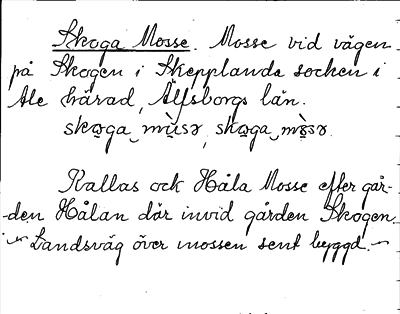 Skoga Mosse. Mosse vid vägen
på Skogen i Skepplanda socken i
Ale härad, Älfsborgs län.
skøga mùsə, skøga mòsə.
Kallas ock Håla Mosse efter går-
-den Hålan där invid gården Skogen.
Landsväg över mossen sent byggd.